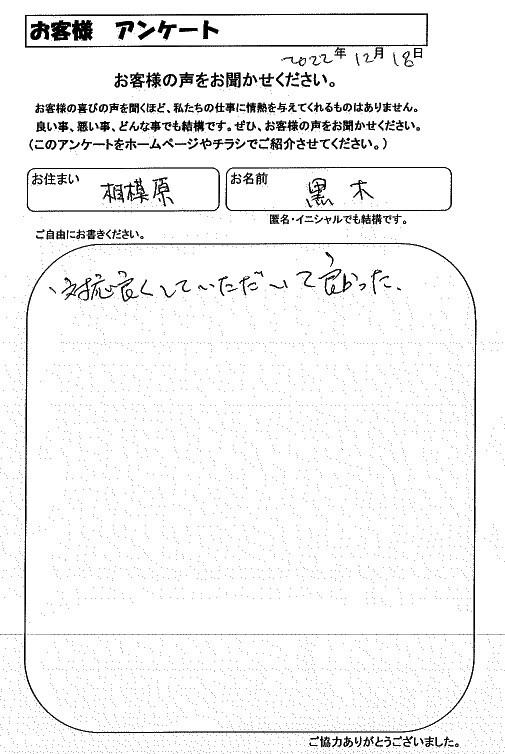 お客様 アンケート
2022年12月18日
お客様の声をお聞かせください。
お客様の喜びの声を聞くほど、私たちの仕事に情熱を与えてくれるものはありません。
良い事、悪い事、どんな事でも結構です。ぜひ、お客様の声をお聞かせください。
(このアンケートをホームページやチラシでご紹介させてください。)
お住まい 相模原
お名前 黒木
匿名・イニシャルでも結構です。
ご自由にお書きください。
対応良くしていただいて良かった.
ご協力ありがとうございました。